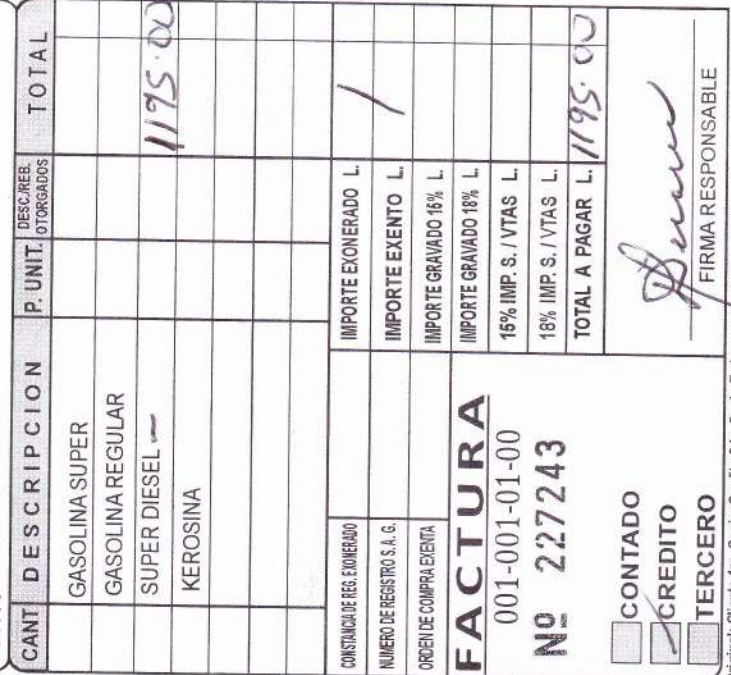 CANT DESCRIPCION P. UNIT. DESC./REB. OTORGADOS TOTAL
GASOLINA SUPER
GASOLINA REGULAR
SUPER DIESEL — 1195.00
KEROSINA
CONSTANCIA DE REG. EXONERADO
NUMERO DE REGISTRO S.A.G.
ORDEN DE COMPRA EXENTA
IMPORTE EXONERADO L.
IMPORTE EXENTO L. /
IMPORTE GRAVADO 15% L.
IMPORTE GRAVADO 18% L.
15% IMP. S. / VTAS L.
18% IMP. S. / VTAS L.
TOTAL A PAGAR L. 1195.00
FACTURA
001-001-01-00
Nº 227243
CONTADO
CREDITO
TERCERO
FIRMA RESPONSABLE